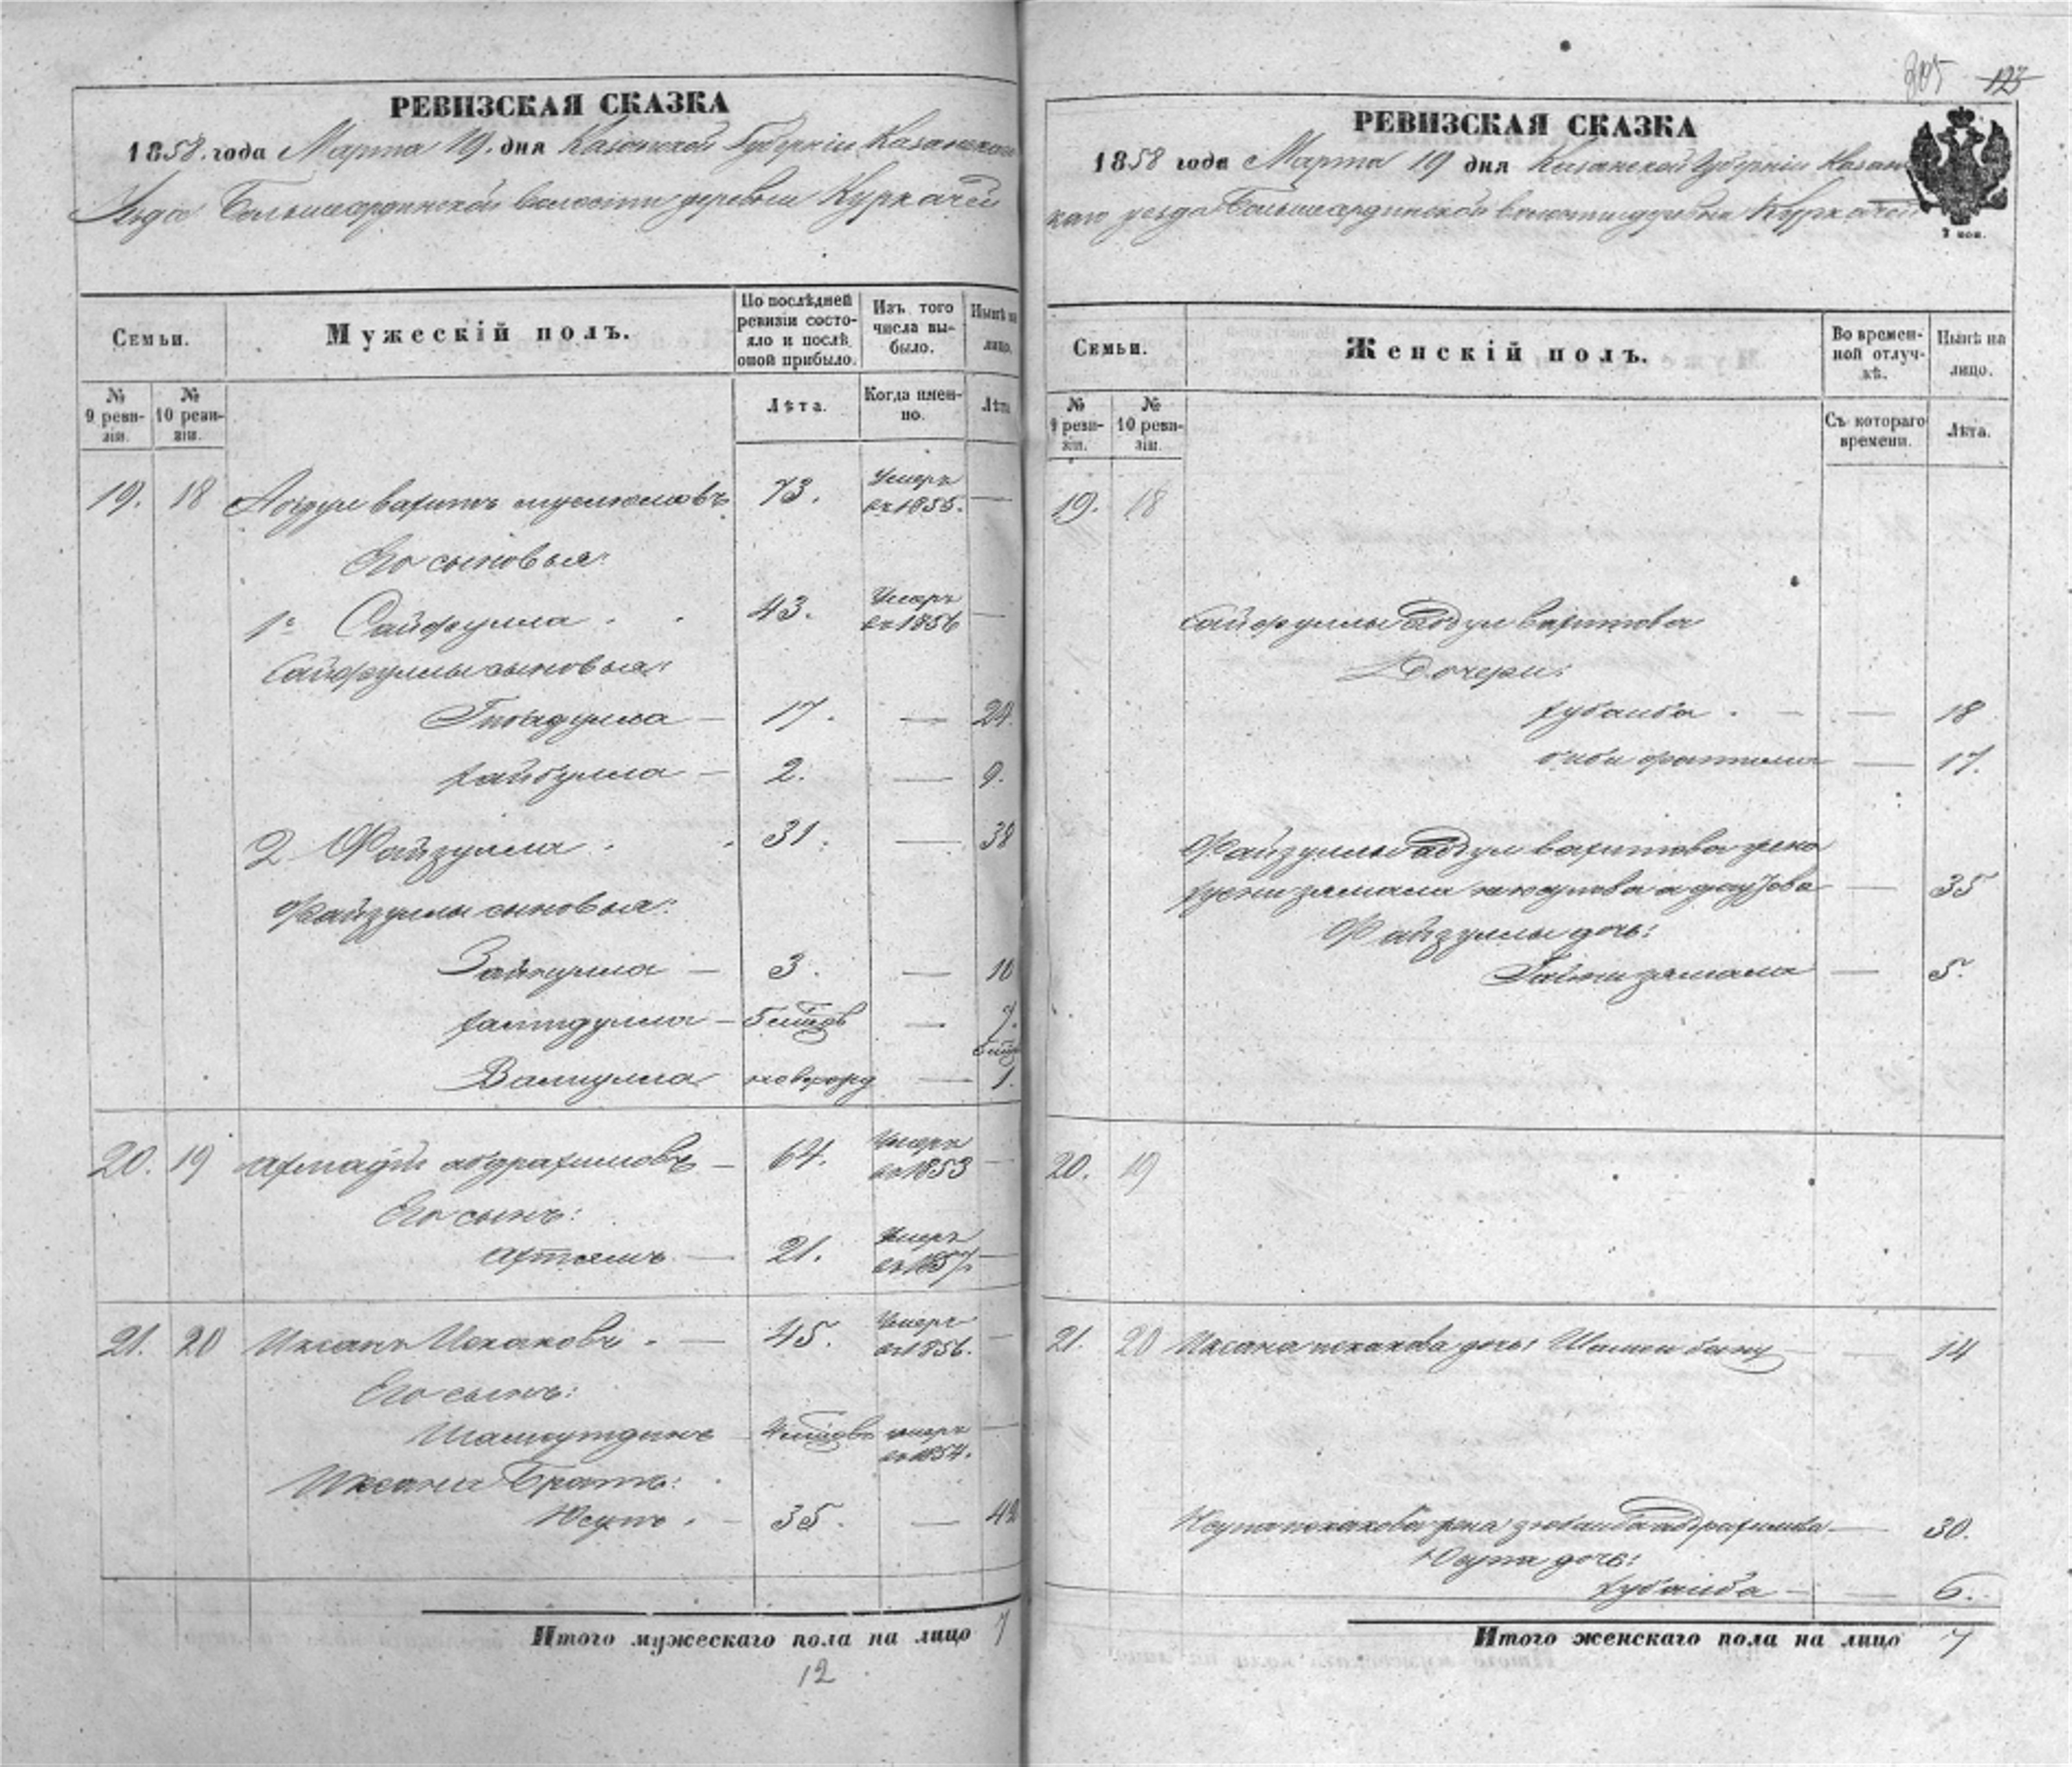 РЕВИЗСКАЯ СКАЗКА
1858. года Марта 19. дня Казанской Губерніи Казанскаго
Уезда Большеардинской волости деревни Куркачей
Семьи.
Мужескій полъ.
По послѣдней ревизіи состояло и послѣ оной прибыло.
Изъ того числа выбыло.
Нынѣ на лицо.
№ 9 ревизіи.
№ 10 ревизіи.
Лѣта.
Когда именно.
Лѣта
19. 18 Абдулвахитъ муслюмовъ 73. Умеръ въ 1855. —
Его сыновья:
1й Сайфулла 43. Умеръ въ 1856 —
Сайфуллы сыновья:
17. — 24.
хайбулла — 2. — 9.
2 Файзулла 31. — 38
Файзуллы сыновья:
Зайнулла — 3. — 10
— 7.
Валиулла новорожд — 1.
20. 19 ахмадій абдрахимовъ — 64. Умеръ въ 1853 —
Его сынъ:
ахтямъ — 21. Умеръ въ 1857. —
21. 20 Иксанъ Исхаковъ — 45. Умеръ въ 1856. —
Его сынъ:
Шамсутдинъ умеръ въ 1854. —
Иксана Братъ:
Юсупъ 35. — 42
Итого мужескаго пола на лицо 7
12
305 123
РЕВИЗСКАЯ СКАЗКА
1858 года Марта 19 дня Казанской Губерніи Казанс
каго уезда Большеардинской волости деревни Куркачей
7 коп.
Семьи.
Женскій полъ.
Во временной отлучкѣ.
Нынѣ на лицо.
№ 9 ревизіи.
№ 10 ревизіи.
Съ котораго времени.
Лѣта.
19. 18
Сайфуллы абдулвахитова
Дочери:
хубаиба — — 18
биби фатима — 17.
Файзуллы абдулвахитова жена
— 35
Файзуллы дочь:
Гайнизямала — 5.
20. 19
21. 20 Иксана исхакова дочь: Шамси бану — 14
Юсупа исхакова жена зюбаида абдрахимова — 30.
Юсупа дочь:
хубаиба — — 6.
Итого женскаго пола на лицо 7